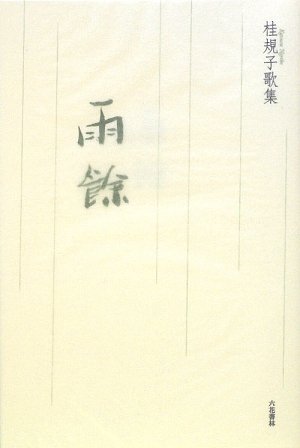 桂規子歌集
雨餘
六花書林